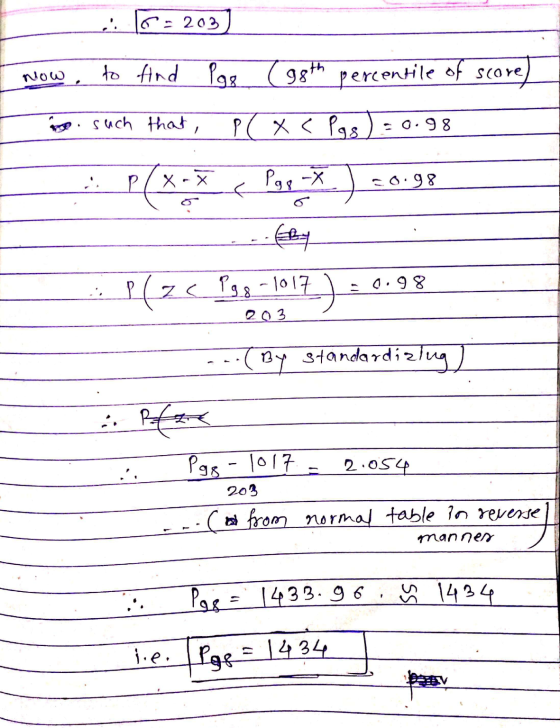 ∴ σ = 203
Now, to find P98 (98th percentile of score)
such that, P( X < P98 ) = 0.98
∴ P( X - X̄ / σ < P98 - X̄ / σ ) = 0.98
--- (By
∴ P( Z < P98 - 1017 / 203 ) = 0.98
--- (By standardizing)
∴ P( Z <
∴ P98 - 1017 / 203 = 2.054
--- ( from normal table in reverse manner )
∴ P98 = 1433.96 . ≈ 1434
i.e. P98 = 1434